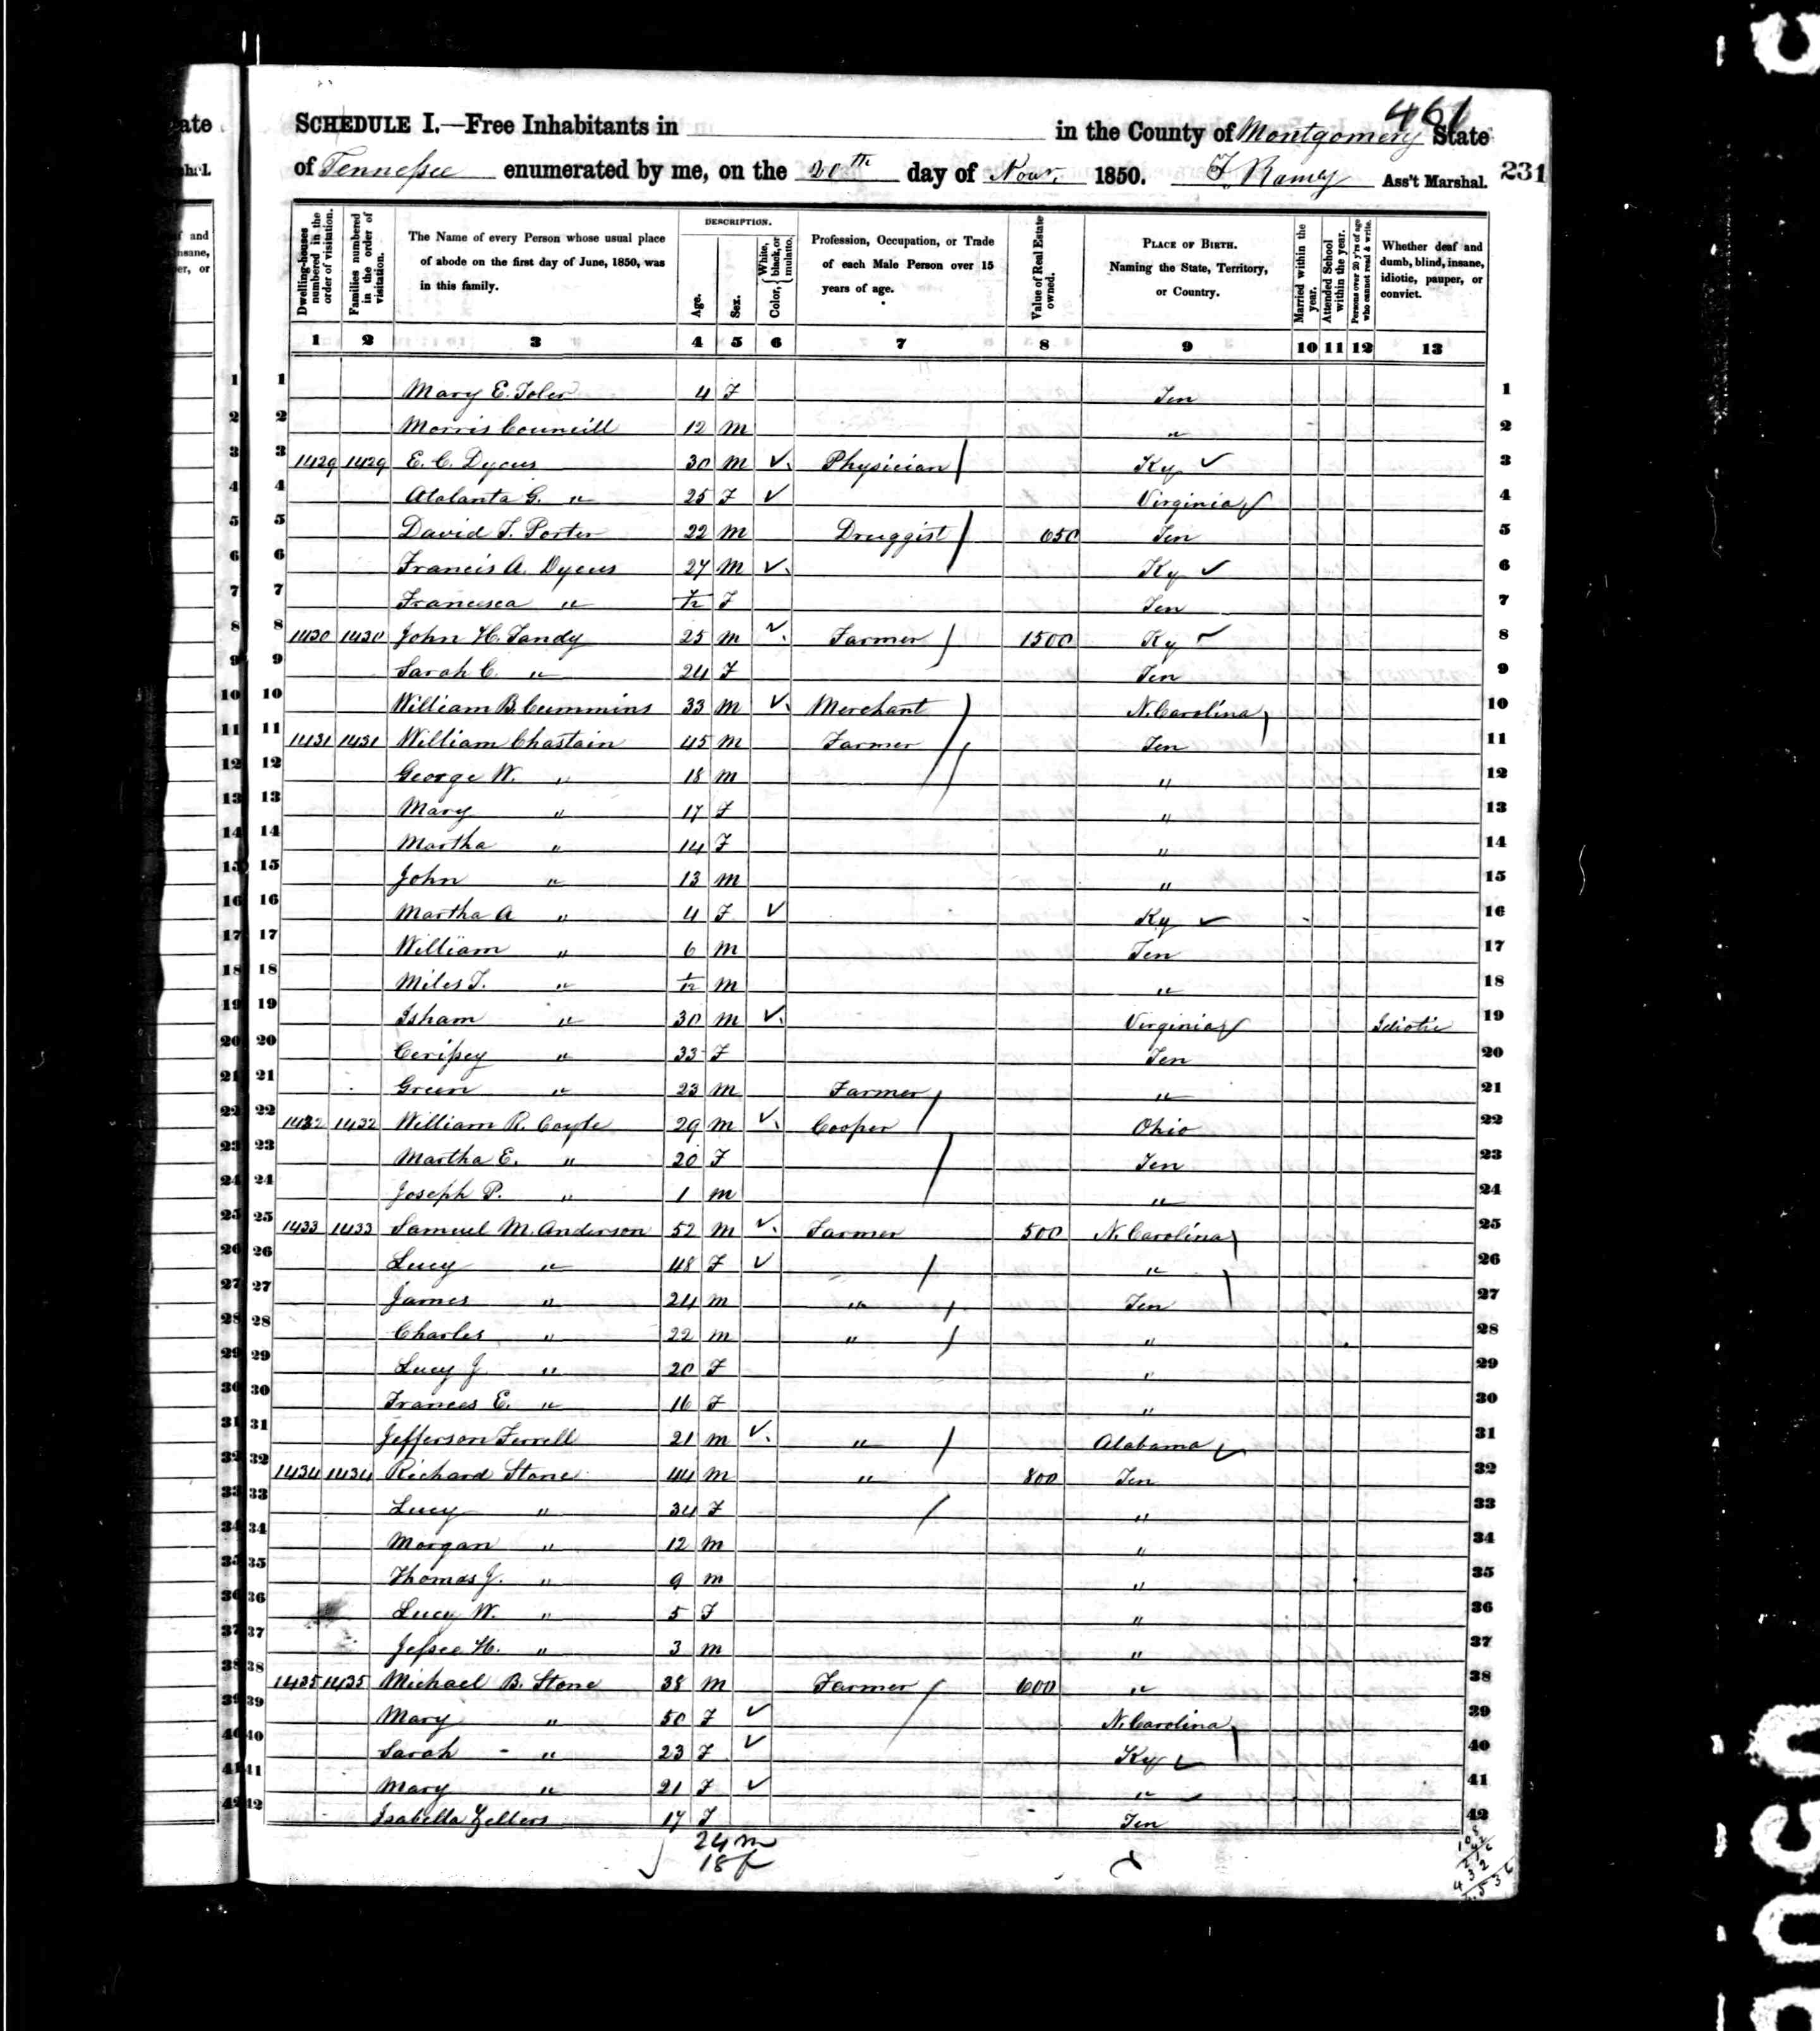 461
SCHEDULE I.—Free Inhabitants in in the County of Montgomery State
of Tennessee enumerated by me, on the 20th day of Nov. 1850. Ass't Marshal. 231
Dwelling-houses numbered in the order of visitation.
Families numbered in the order of visitation.
The Name of every Person whose usual place of abode on the first day of June, 1850, was in this family.
DESCRIPTION.
Age.
Sex.
Color, White, black, or mulatto.
Profession, Occupation, or Trade of each Male Person over 15 years of age.
Value of Real Estate owned.
PLACE OF BIRTH. Naming the State, Territory, or Country.
Married within the year.
Attended School within the year.
Persons over 20 y'rs of age who cannot read & write.
Whether deaf and dumb, blind, insane, idiotic, pauper, or convict.
1 2 3 4 5 6 7 8 9 10 11 12 13
1 Mary E. Toler 4 F Ten 1
2 Morris Councill 12 m " 2
3 1429 1429 E. C. Dycus 30 m ✓ Physician Ky ✓ 3
4 Atalanta G. " 25 F ✓ Virginia ✓ 4
5 David T. Porter 22 m Druggist 650 Ten 5
6 Francis A. Dycus 27 m ✓ Ky ✓ 6
7 Francesca " F Ten 7
8 1430 1430 John H. Tandy 25 m ✓ Farmer 1500 Ky ✓ 8
9 Sarah C. " 24 F Ten 9
10 William B. Cummins 33 m ✓ Merchant N. Carolina 10
11 1431 1431 William Chastain 45 m Farmer Ten 11
12 George W. " 18 m " 12
13 Mary " 17 F " 13
14 Martha " 14 F " 14
15 John " 13 m " 15
16 Martha A " 4 F ✓ Ky ✓ 16
17 William " 6 m Ten 17
18 Miles T. " 1/12 m " 18
19 Isham " 30 m ✓ Virginia ✓ Idiotic 19
20 " 33 F Ten 20
21 Green " 23 m Farmer " 21
22 1432 1432 William R. Coyle 29 m ✓ Cooper Ohio 22
23 Martha E. " 20 F Ten 23
24 Joseph P. " 1 m " 24
25 1433 1433 Samuel M. Anderson 52 m ✓ Farmer 500 N. Carolina 25
26 Lucy " 48 F ✓ " 26
27 James " 24 m " Ten 27
28 Charles " 22 m " " 28
29 Lucy J. " 20 F " 29
30 Frances E. " 16 F " 30
31 Jefferson Ferrell 21 m ✓ " Alabama ✓ 31
32 1434 1434 Richard Stone 44 m " 800 Ten 32
33 Lucy " 34 F " 33
34 Morgan " 12 m " 34
35 Thomas J. " 9 m " 35
36 Lucy W. " 5 F " 36
37 Jessee H. " 3 m " 37
38 1435 1435 Michael B. Stone 38 m Farmer 600 " 38
39 Mary " 50 F ✓ N. Carolina 39
40 Sarah " 23 F ✓ Ky ✓ 40
41 Mary " 21 F ✓ " 41
42 Isabella Zellers 17 F Ten 42
24 m
18 f